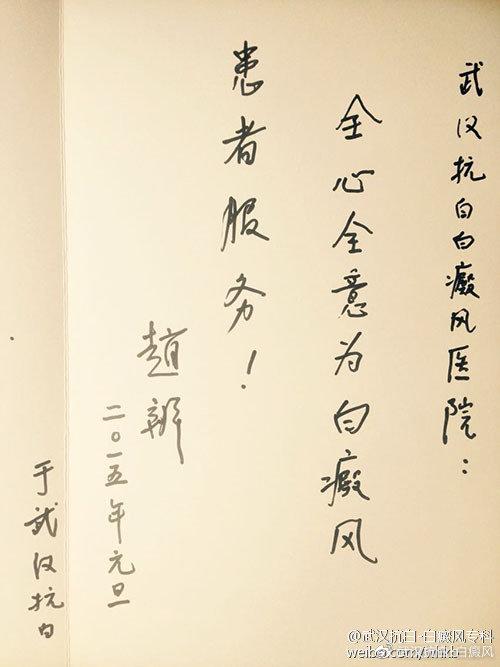 武汉抗白白癜风医院：
全心全意为白癜风
患者服务！
趙辨
二〇一五年元旦
于武汉抗白
@武汉抗白-白癜风专科